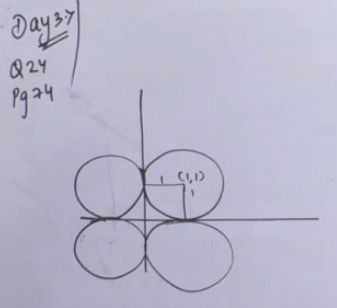 Day 37
Q24
Pg 74
1 (1,1)
1